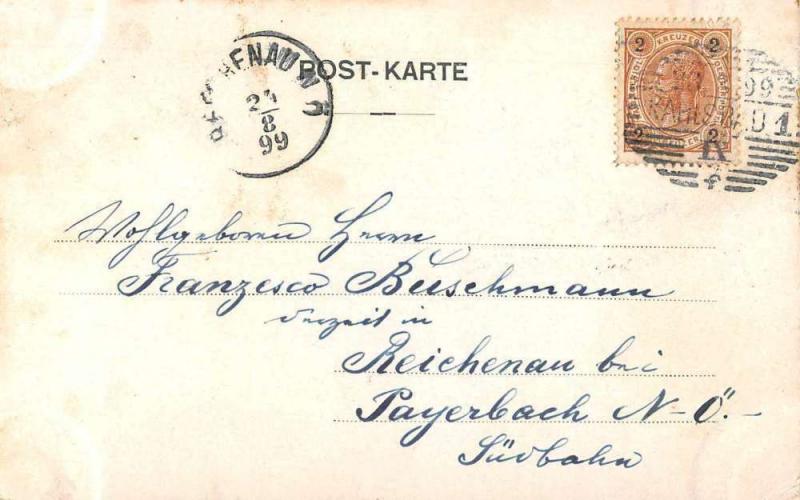 POST-KARTE
REICHENAU N Ö
8
99
2 KREUZER 2
2 2
99
KARLSBAD 1
K
f
Wohlgeboren Herrn
Franzesco Buschmann
derzeit in
Reichenau bei
Payerbach N-Ö.-
Südbahn